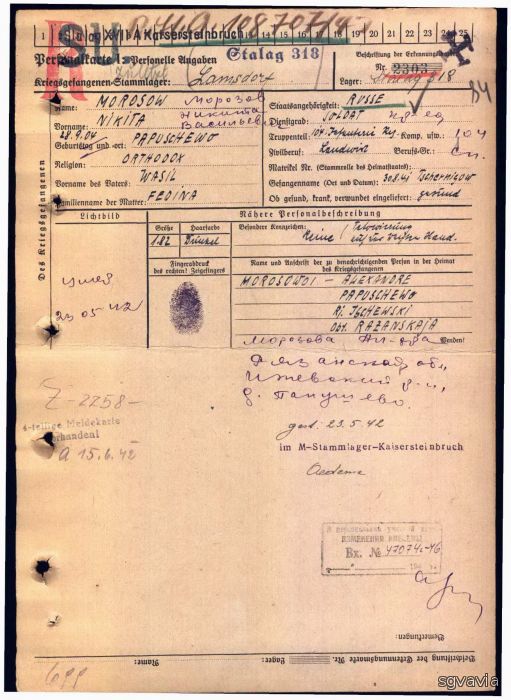 1 2 3 4 5 6 7 8 9 10 11 12 13 14 15 16 17 18 19 20 21 22 23 24 25
XVII A Kaisersteinbruch
Stalag 318
Personalkarte I: Personelle Angaben
Beschriftung der Erkennungsmarke
Nr. 2303
Kriegsgefangenen-Stammlager: Lamsdorf
Lager: 318
84
Des Kriegsgefangenen
Name: MOROSOW Морозов
Staatsangehörigkeit: RUSSE
Vorname: NIKITA Никита Васильев
Dienstgrad: SOLDAT
Geburtstag und -ort: 28.9.04 PAPUSCHEWO
Truppenteil: 104. Infanterie Rg. Komp. usw.: 104
Religion: ORTHODOX
Zivilberuf: Landwirt Berufs-Gr.:
Vorname des Vaters: WASIL
Matrikel Nr. (Stammrolle des Heimatstaates):
Gefangennahme (Ort und Datum): 30.8.41 Tschernigow
Familienname der Mutter: FEDINA
Ob gesund, krank, verwundet eingeliefert: gesund
Lichtbild
Nähere Personalbeschreibung
Größe
Haarfarbe
Besondere Kennzeichen:
1.82
Dunkel
Keine / Tätowierung
Hand.
Fingerabdruck
des rechten! Zeigefingers
Name und Anschrift der zu benachrichtigenden Person in der Heimat
des Kriegsgefangenen
умер
23 05 42
MOROSOWOI – ALEXANDRE
PAPUSCHEWO
RJ. ISCHEWSKI
OBL. RAZANSKAJA
Wenden!
Морозова
Рязанская об
Ижевский р-н,
д. Папушево.
gest. 23.5.42
im M-Stammlager-Kaisersteinbruch
Z-2258-
4-teilige Meldekarte
vorhanden!
15.6.42
Вх. № 47074с-46
Bemerkungen:
Beschriftung der Erkennungsmarke Nr.
Lager:
Name:
sgvavia